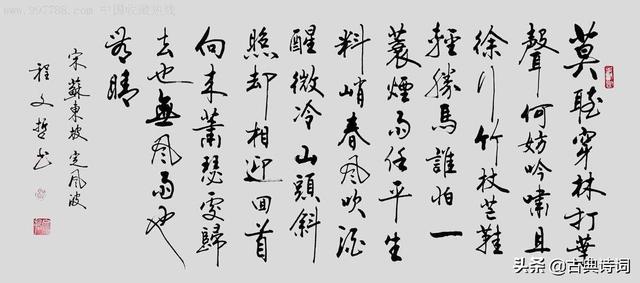 莫聽穿林打葉
聲何妨吟嘯且
徐行竹杖芒鞵
輕勝馬誰怕一
蓑煙雨任平生
料峭春風吹酒
醒微冷山頭斜
照却相迎回首
向来蕭瑟處歸
去也無風雨也
無晴
宋蘇東坡 定風波
程文哲书
www.997788.com 中国收藏热线
头条 @古典诗词